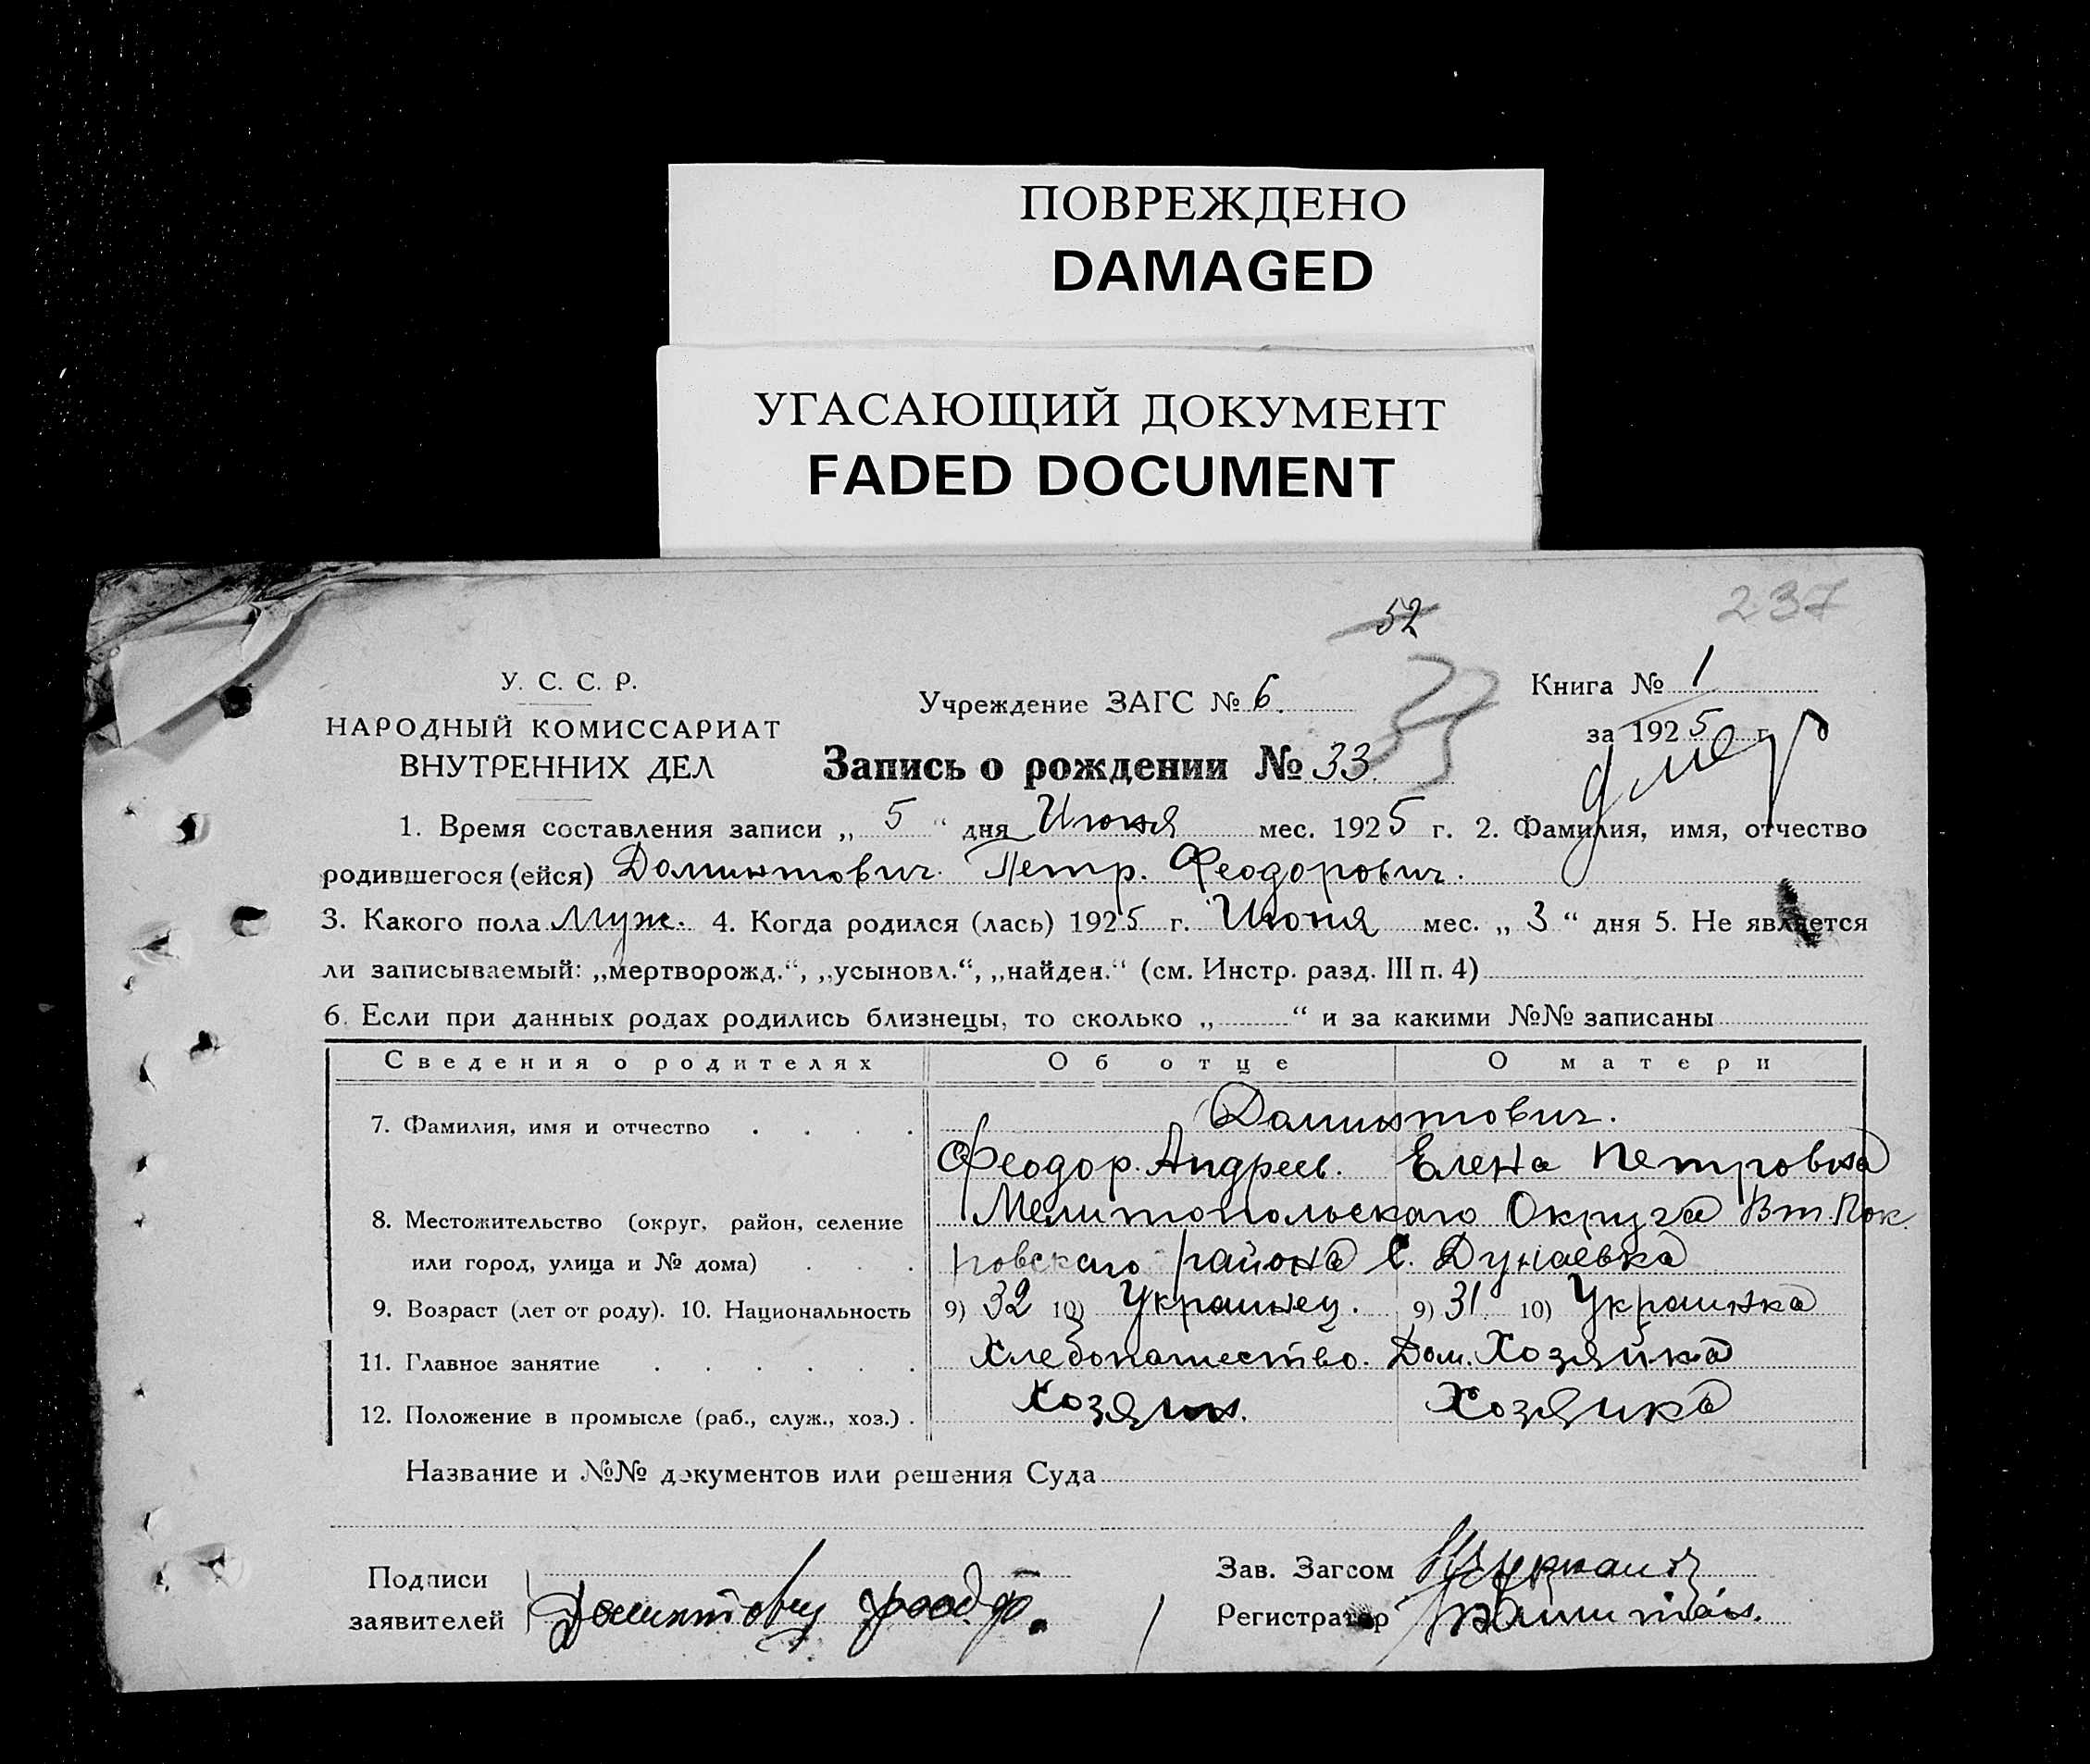 ПОВРЕЖДЕНО
DAMAGED
УГАСАЮЩИЙ ДОКУМЕНТ
FADED DOCUMENT
237
52
У. С. С. Р.
НАРОДНЫЙ КОМИССАРИАТ
ВНУТРЕННИХ ДЕЛ
Учреждение ЗАГС № 6.
Запись о рождении № 33.
Книга № 1
за 1925 г.
умер
1. Время составления записи „ 5 “ дня Июня мес. 1925 г. 2. Фамилия, имя, отчество
родившегося (ейся) Доминтович. Петр. Феодорович.
3. Какого пола Муж. 4. Когда родился (лась) 1925 г. Июня мес. „ 3 “ дня 5. Не является
ли записываемый: „мертворожд.“, „усыновл.“, „найден.“ (см. Инстр. разд. III п. 4)
6. Если при данных родах родились близнецы, то сколько „ “ и за какими №№ записаны
Сведения о родителях Об отце О матери
7. Фамилия, имя и отчество Доминтович.
Феодор. Андреев. Елена Петровна
8. Местожительство (округ, район, селение Мелитопольскаго Округа Вт. Пок
или город, улица и № дома) ровскаго района с. Дунаевка
9. Возраст (лет от роду). 10. Национальность 9) 32 10) Украинец. 9) 31 10) Украинка
11. Главное занятие Хлебопашество. Дом. Хозяйка
12. Положение в промысле (раб., служ., хоз.) . Хозяин. Хозяйка
Название и №№ документов или решения Суда
Подписи
заявителей Доминтович
Зав. Загсом
Регистратор